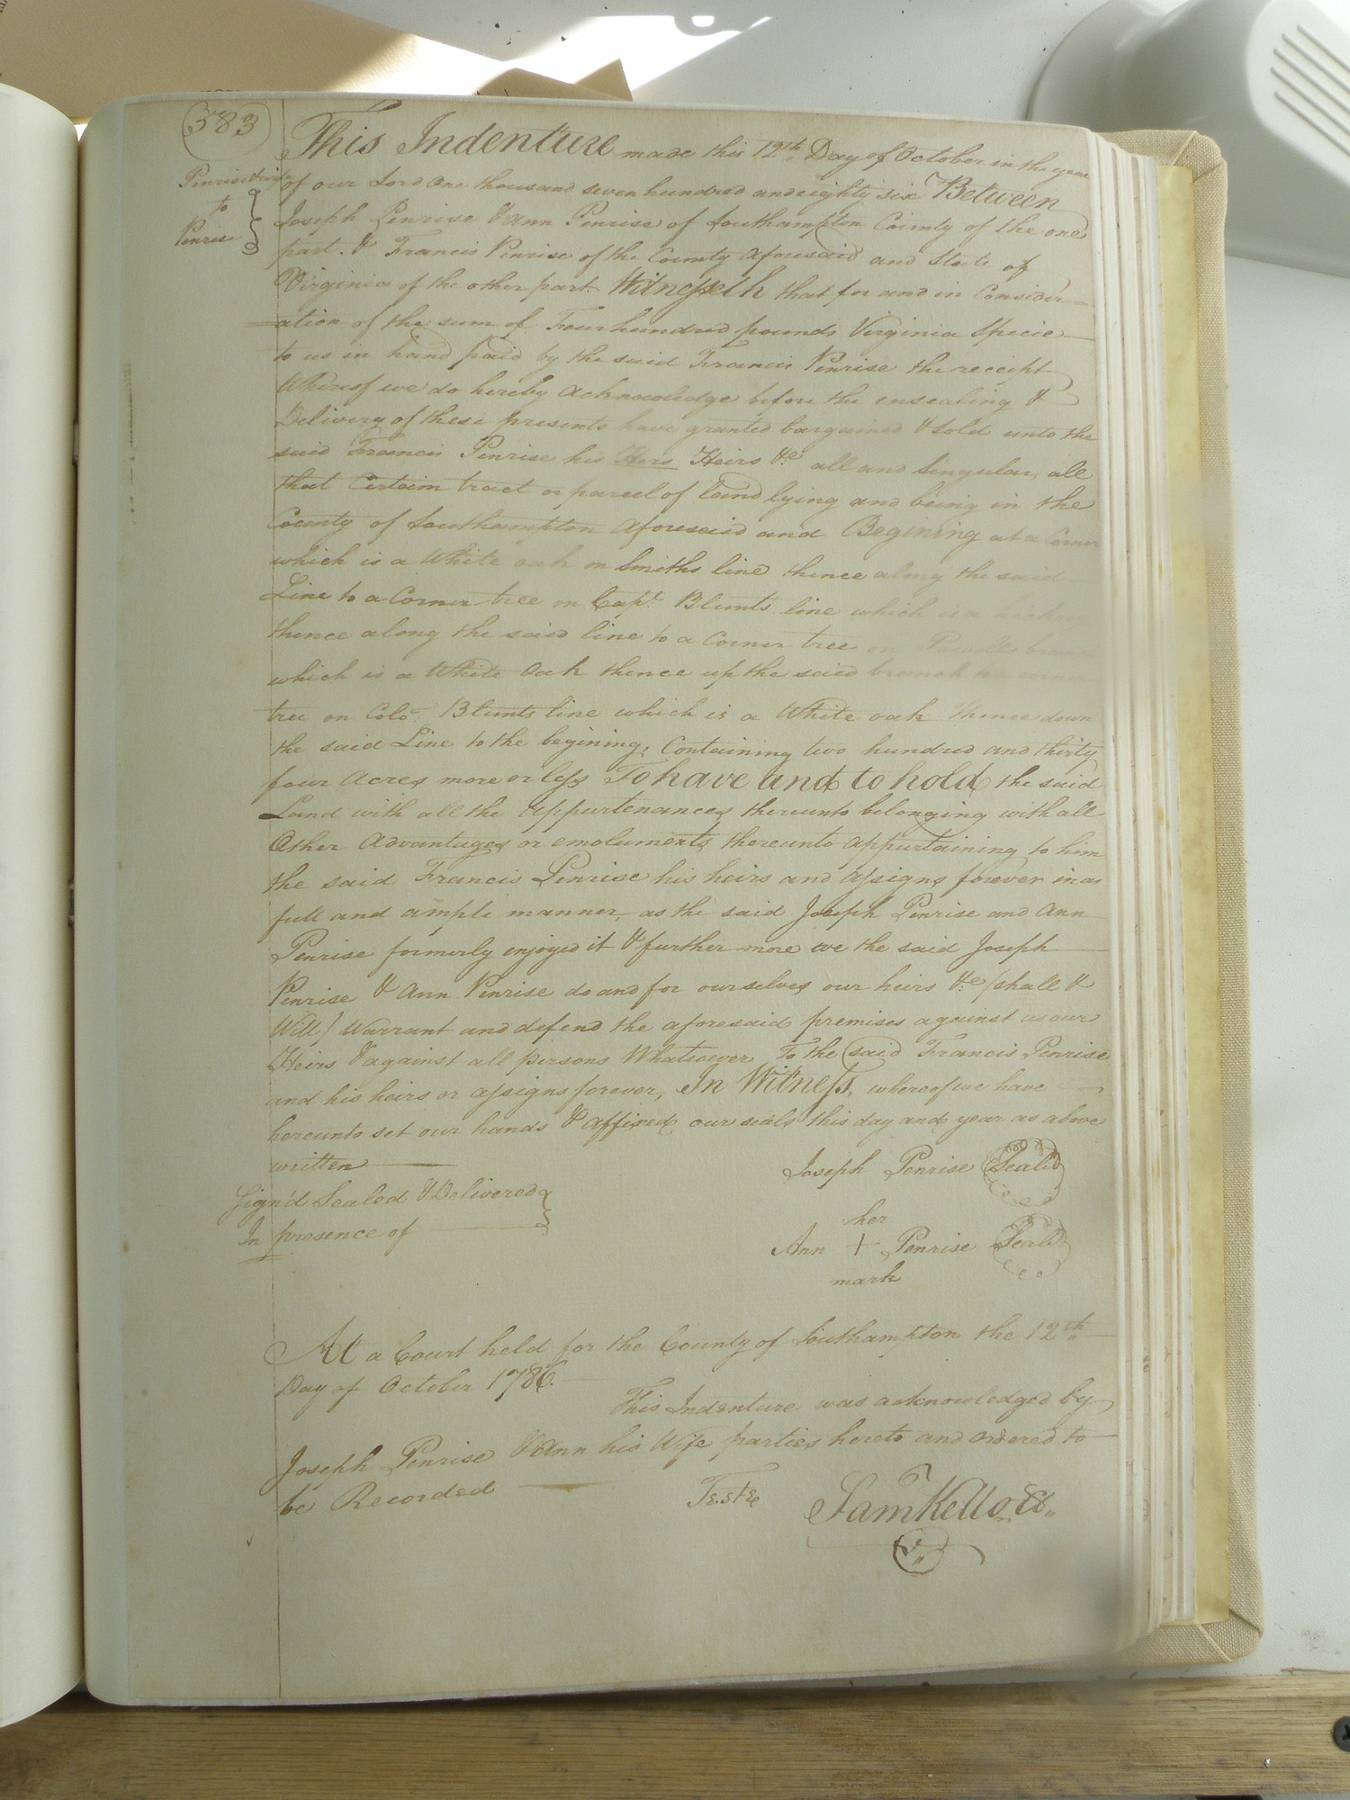 383
Penrise &wife
to
Penrise
This Indenture made this 12th Day of October in the year
of our Lord One thousand seven hundred and eighty six Between
Joseph Penrise & Ann Penrise of Southampton County of the one
part. & Francis Penrise of the County aforesaid and State of
Virginia of the other part. Witnesseth that for and in Consider-
ation of the sum of Four hundred pounds Virginia Specie
to us in hand paid by the said Francis Penrise the receipt
Whereof we do hereby acknowledge before the ensealing &
Delivery of these presents have granted bargained & sold unto the
said Francis Penrise his Hers Heirs &c all and Singular, all
that Certain tract or parcel of Land lying and being in the
County of Southampton aforesaid and Begining at a Corner
which is a White oak on Smiths line thence along the said
Line to a Corner tree on Capt Blunts line which is a
thence along the said line to a Corner tree on
which is a White Oak thence up the said branch to
tree on Colo. Blunts line which is a White oak thence down
the said Line to the begining, Containing two hundred and thirty
four Acres more or less To have and to hold the said
Land with all the appurtenances thereunto belonging with all
Other advantages or emoluments thereunto appurtaining to him
the said Francis Penrise his heirs and assigns forever in as
full and ample manner, as the said Joseph Penrise and Ann
Penrise formerly enjoyed it & further more we the said Joseph
Penrise & Ann Penrise do and for ourselves our heirs &c (shall &
Will) Warrant and defend the aforesaid premises against us our
Heirs & against all persons Whatsoever To the said Francis Penrise
and his heirs or assigns forever, In Witness, whereof we have
hereunto set our hands & affixed our seals this day and year as above
written
Joseph Penrise Seal'd
Sign'd Sealed & Delivered
In presence of
her
Ann + Penrise Seal'd
mark
At a Court held for the County of Southampton the 12th
Day of October 1786.
This Indenture was acknowledged by
Joseph Penrise & Ann his Wife parties hereto and ordered to
be Recorded
Teste
Sam Kello